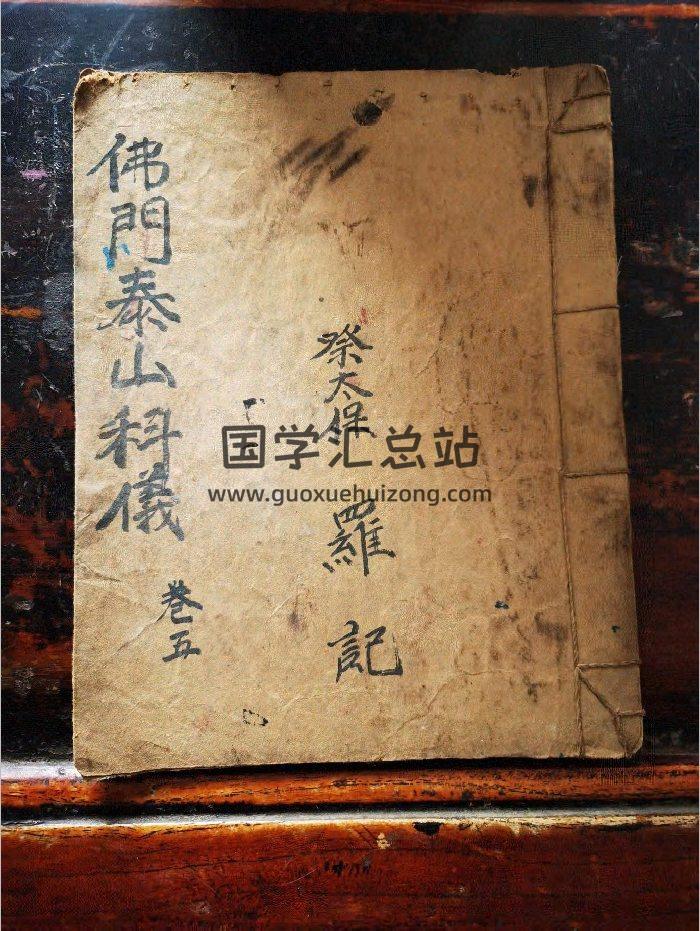 佛門泰山科儀
卷五
祭太保
羅記
国学汇总站
www.guoxuehuizong.com